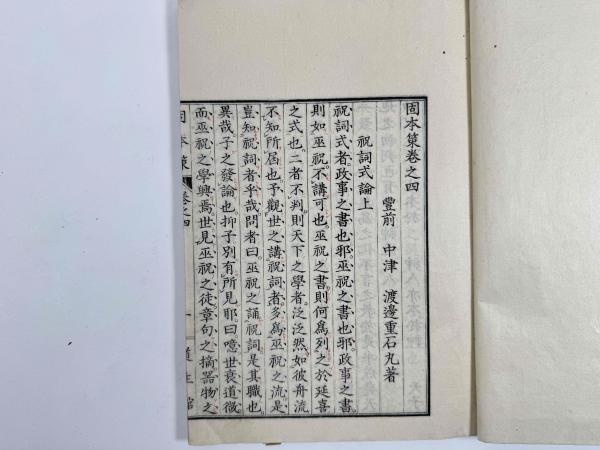 固本策卷之四
豐前 中津 渡邊重石丸著
祝詞式論上
祝詞式者政事之書也邪巫祝之書也邪政事之書
則如巫祝不講可也巫祝之書則何爲列之於延喜
之式也二者不判則天下之學者泛泛然如彼舟流
不知所屆也予觀世之講祝詞者多爲巫祝之流是
豈知祝詞者乎哉問者曰巫祝之誦祝詞是其職也
異哉子之發論也抑子別有所見耶曰噫世衰道微
而巫祝之學興焉世見巫祝之徒章句之摘器物之
固本策 卷之四 一 道生館